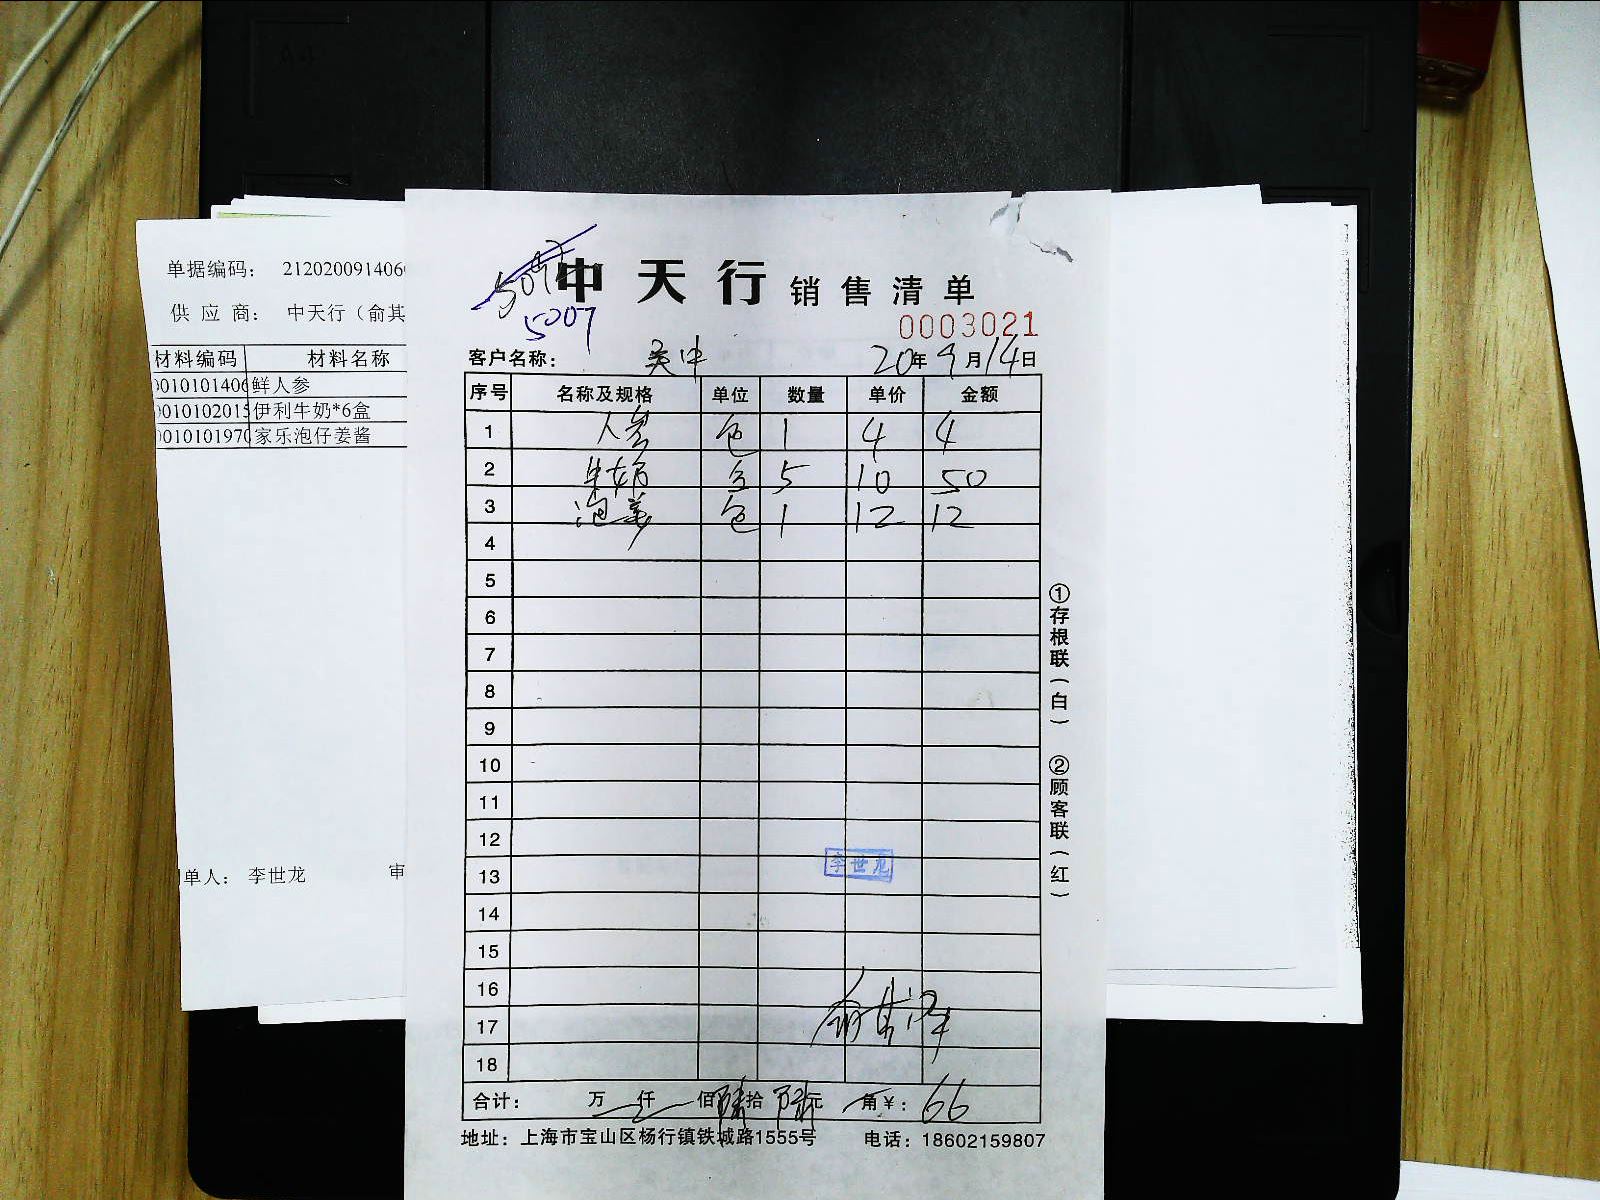 单据编码： 2120200914060
供 应 商： 中天行（俞其
材料编码 材料名称
0010101406 鲜人参
0010102015 伊利牛奶*6盒
0010101970 家乐泡仔姜酱
单人： 李世龙 审
5007
中天行 销售清单
0003021
客户名称： 吴中 20年9月14日
序号 名称及规格 单位 数量 单价 金额
1 人参 包 1 4 4
2 牛奶 5 10 50
3 泡姜 包 1 12 12
4
5
6
7
8
9
10
11
12
13
14
15
16
17
18
李世龙
合计： 万 仟 佰 陆拾 陆元 角￥：66
地址：上海市宝山区杨行镇铁城路1555号 电话：18602159807
①存根联（白） ②顾客联（红）